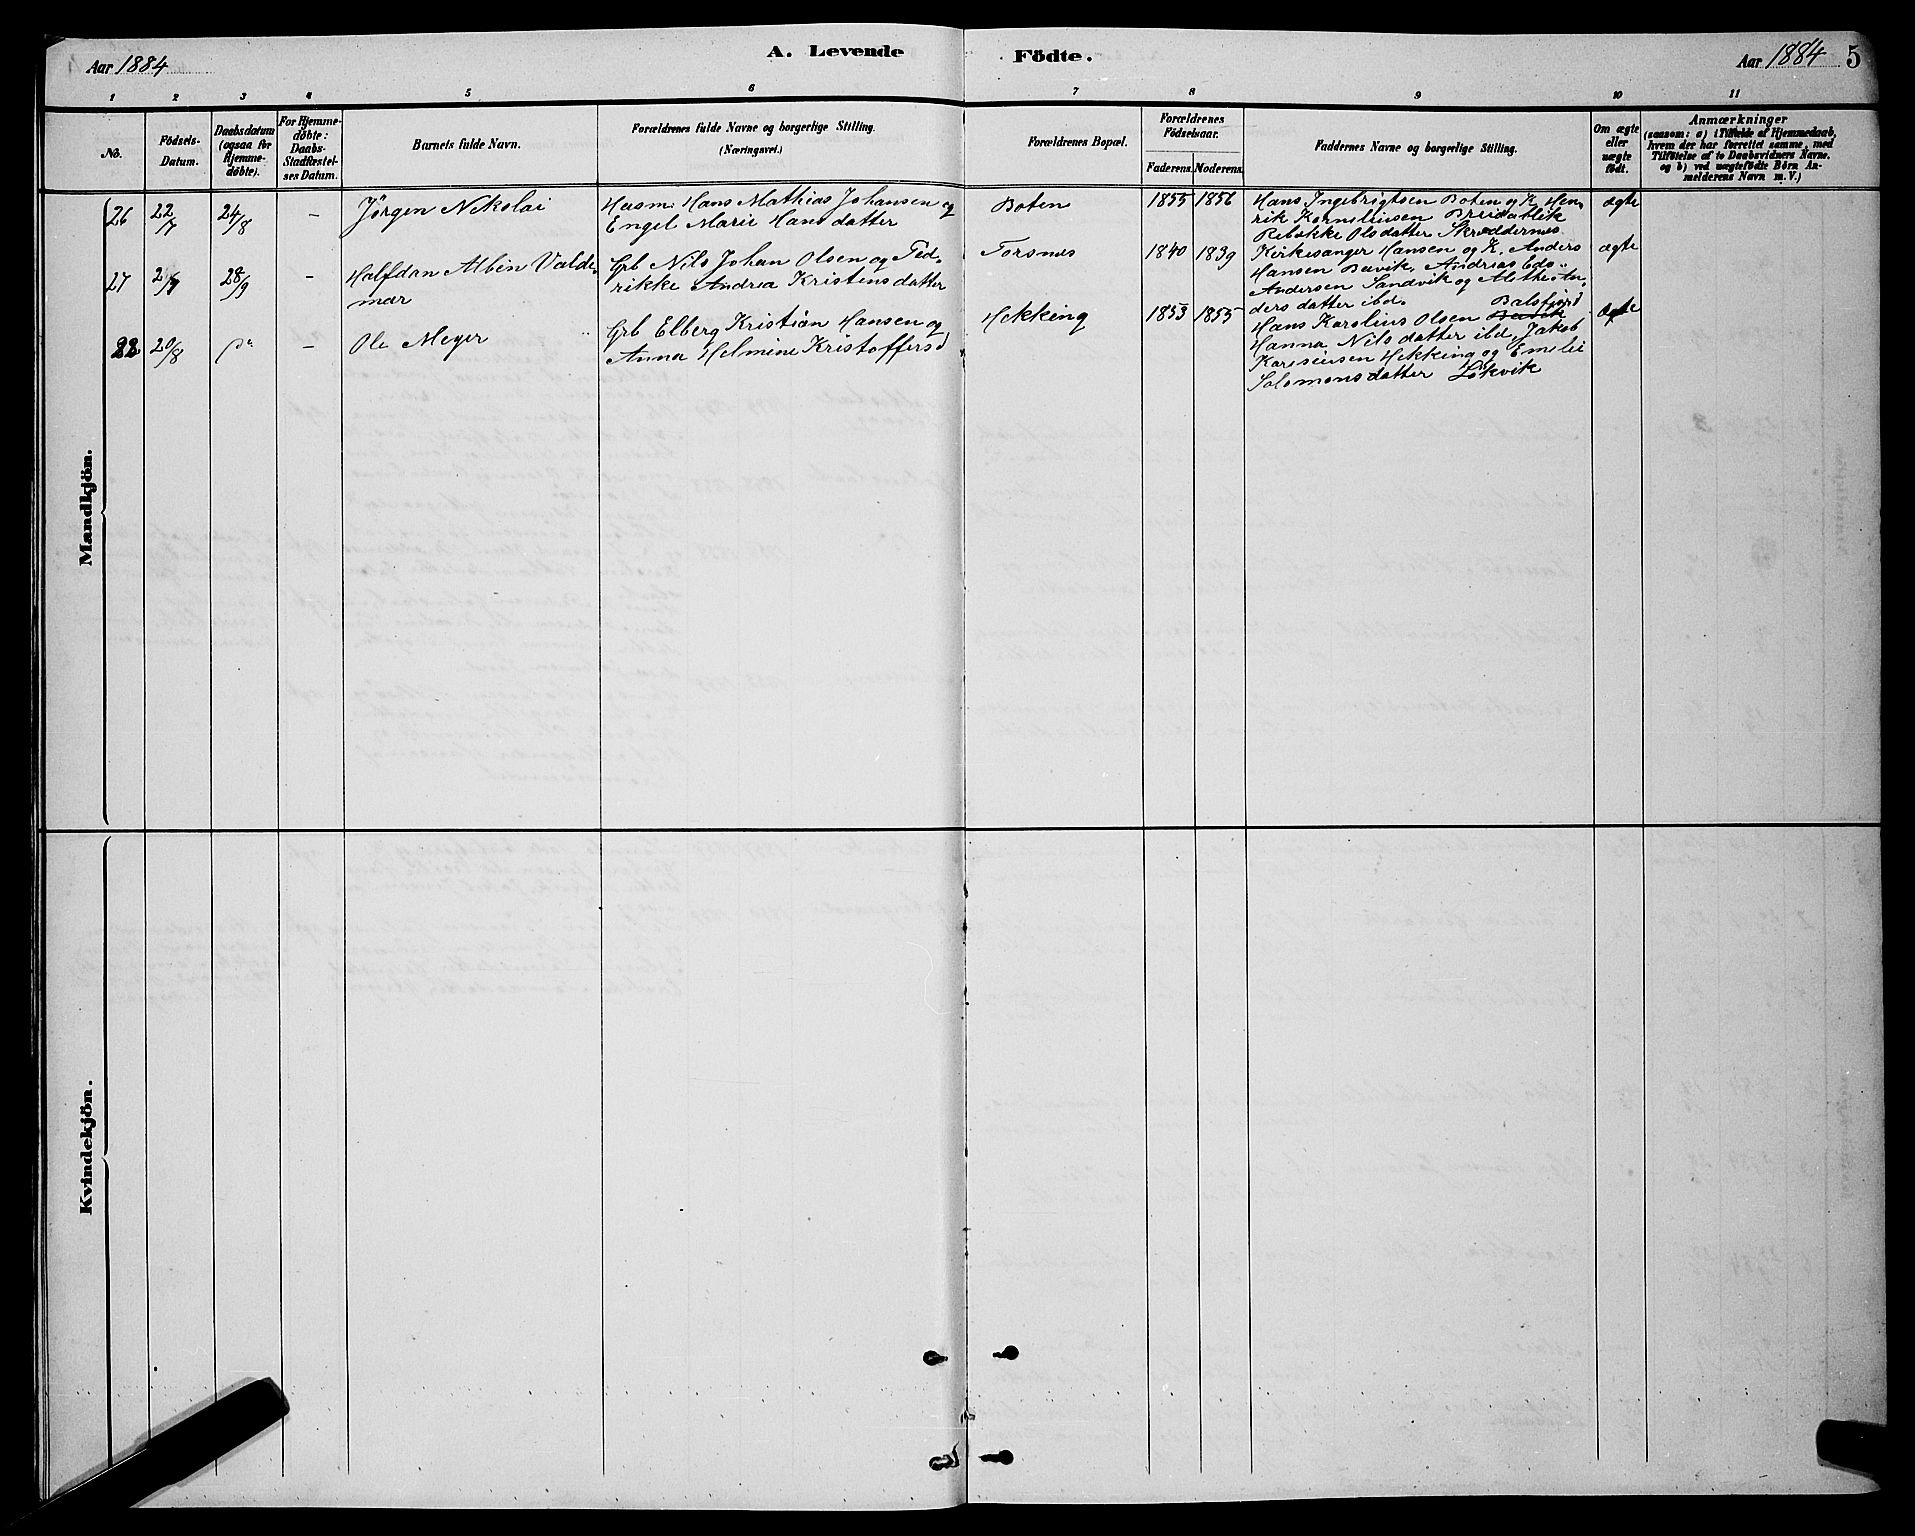 Aar 1884
A. Levende
Födte.
Aar 1884 5
1 2 3 4 5 6 7 8 9 10 11
No.
Födsels-
Datum.
Daabsdatum
(ogsaa for
Hjemme-
döbte).
For Hjemme-
döbte:
Daabs-
Stadfæstel-
ses Datum.
Barnets fulde Navn.
Forældrenes fulde Navne og borgerlige Stilling.
(Næringsvei.)
Forældrenes Bopæl.
Forældrenes
Födselsaar.
Faderens. Moderens.
Faddernes Navne og borgerlige Stilling.
Om ægte
eller
uægte
födt.
Anmærkninger
(saasom: a) i Tilfælde af Hjemmedaab,
hvem der har forrettet samme, med
Tilföielse af to Daabsvidners Navne.
og b) ved uægtefödte Börn An-
melderens Navn m. V.)
Mandkjön.
26 22/7 24/8 – Jörgen Nikolai
Husm. Hans Mathias Johansen og
Engel Marie Hansdatter
Boten 1855 1856
Hans Ingebrigtsen Boten og K. Hen-
rik Korneliussen Breidablik
Rebekke Olsdatter Skræddernes.
ægte
27 2/7 28/9 – Halfdan Albin Valde-
mar
Grb Nils Johan Olsen og Fed-
rikke Andrea Kristensdatter
Torsnes 1840 1839
Kirkesanger Hansen og K. Anders
Hansen Bervik, Andrias Eds..
Andersen Sandvik og Alethe An-
ders datter ibd.
ægte
28 20/8 – Ole Meyer
Grb Elberg Kristian Hansen og
Anna Helmine Kristoffersd
Hekking 1853 1855
Balsfjord
Hans Karolius Olsen
Hanna Nilsdatter ibd, Jakob
Hekking og Emelie
Salomonsdatter Lökvik
ægte
Kvindekjön.